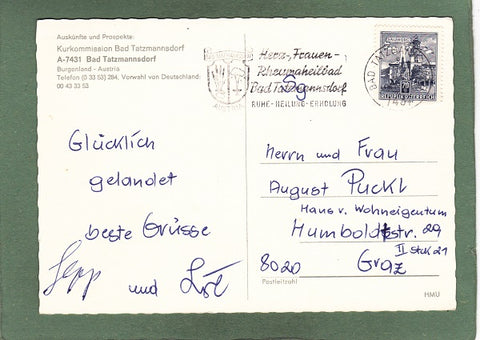 Auskünfte und Prospekte:
Kurkommission Bad Tatzmannsdorf
A-7431 Bad Tatzmannsdorf
Burgenland - Austria
Telefon (0 33 53) 284, Vorwahl von Deutschland:
00 43 33 53
Herz-, Frauen-,
Rheumaheilbad
Bad Tatzmannsdorf
RUHE-HEILUNG-ERHOLUNG
BAD TATZ
7431
REPUBLIK ÖSTERREICH
Sg
Glücklich
gelandet
beste Grüsse
Sepp und
Herrn und Frau
August Puckl
Haus v. Wohneigentum
Humboldtstr. 29
II Stk 21
8020 Graz
Postleitzahl
HMU